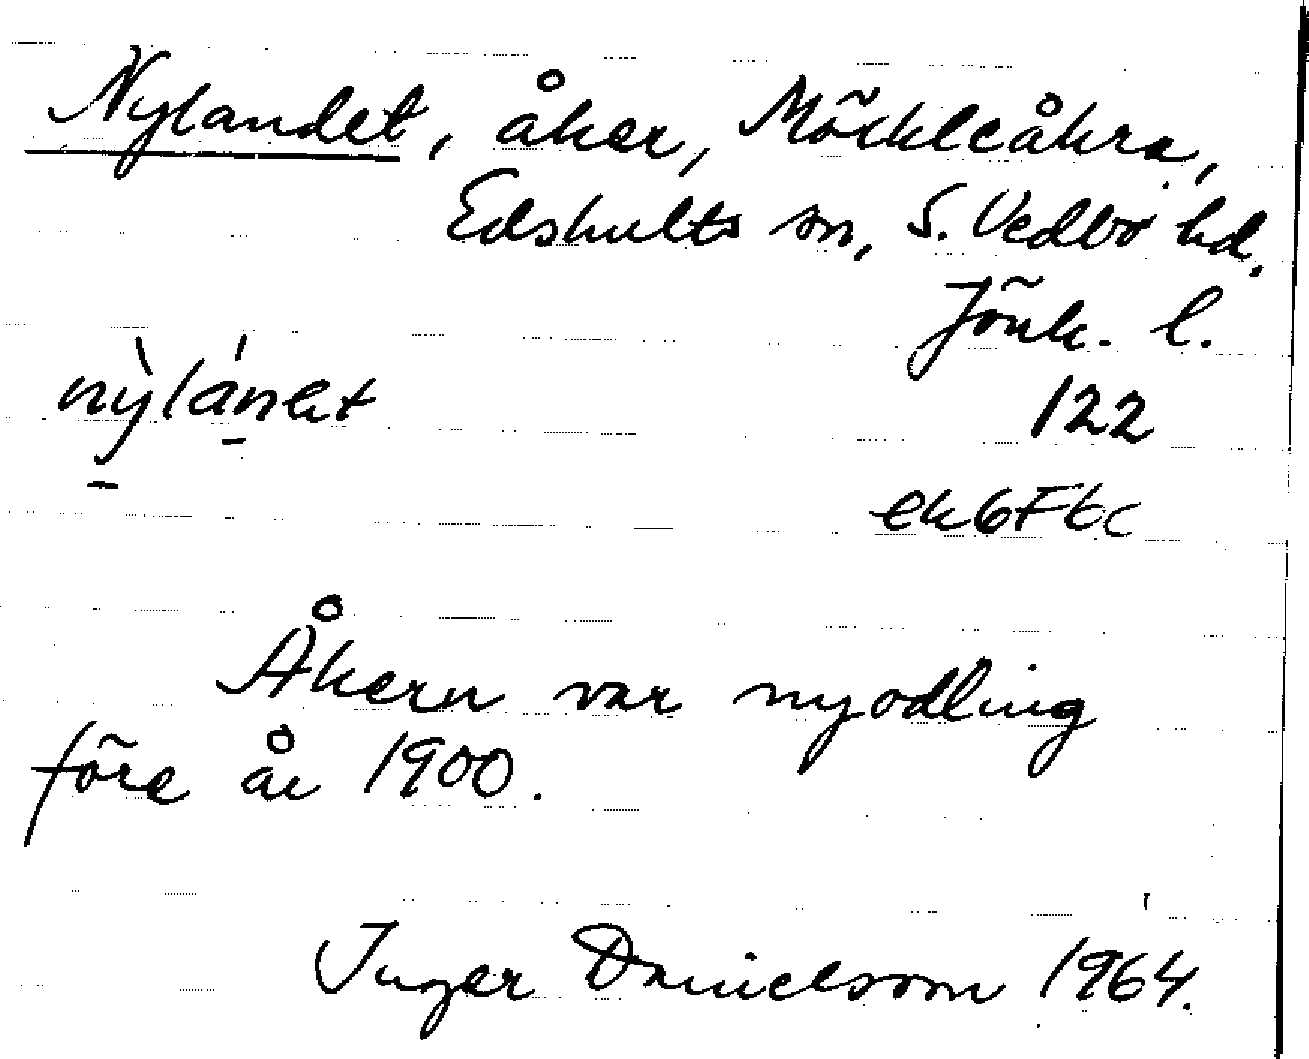 Nylandet, åker, Möckleåkra,
Edshults sn, S. Vedbo hd.
Jönk. l.
nỳlánet
122
ek6F6c
Åkern var nyodling
före år 1900.
Inger Danielsson 1964.